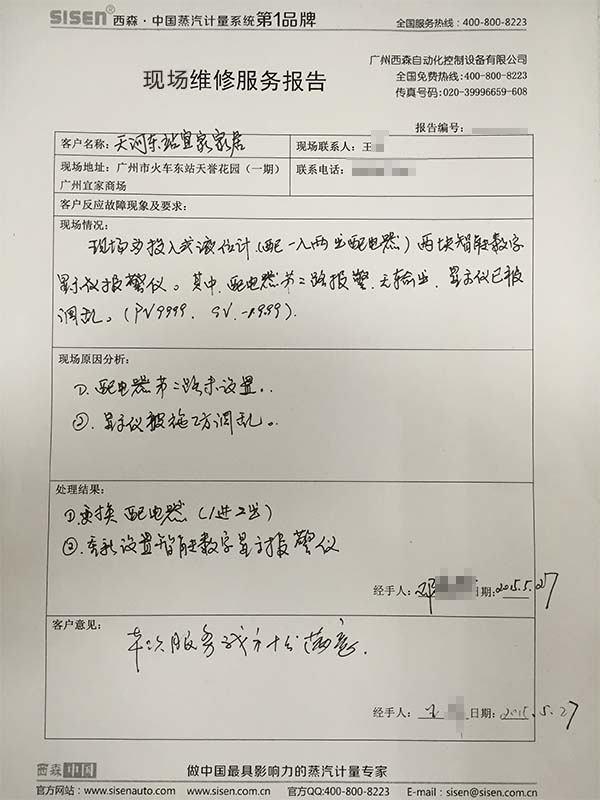 SISEN® 西森·中国蒸汽计量系统第1品牌
全国服务热线:400-800-8223
广州西森自动化控制设备有限公司
现场维修服务报告
全国免费热线:400-800-8223
传真号码:020-39996659-608
报告编号:
客户名称: 天河东站宜家家居
现场联系人: 王
现场地址:广州市火车东站天誉花园(一期)
广州宜家商场
联系电话:
客户反应故障现象及要求:
现场情况:
现场为投入式液位计(配一入两出配电器)两块智能数字
显示仪报警仪。其中,配电器第二路报警,无输出,显示仪已被
调乱。(PV9999. SV.-1999).
现场原因分析:
①.配电器第二路未设置..
②.显示仪被施工方调乱。.
处理结果:
①更换配电器(1进2出)
②.重新设置智能数字显示报警仪
经手人: 邓 日期: 2015.5.27
客户意见:
本次服务我方十分满意.
经手人: 王 日期: 2015.5.27
西森中国
做中国最具影响力的蒸汽计量专家
官方网站:www.sisenauto.com / www.sisen.com.cn 官方QQ:400-800-8223 E-mail:sisen@sisen.com.cn